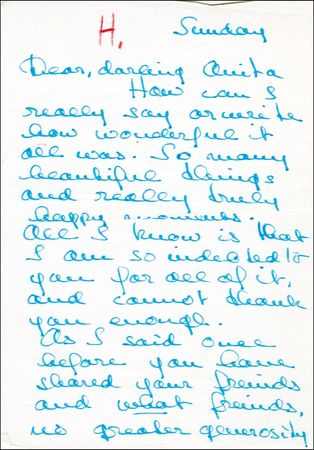 H. Sunday
Dear, darling Anita
How can I
really say or write
how wonderful it
all was. So many
beautiful things
and really truly
happy moments.
All I know is that
I am so indebted to
you for all of it,
and cannot thank
you enough.
As I said once
before you have
shared your freinds
and what freinds,
no greater generosity